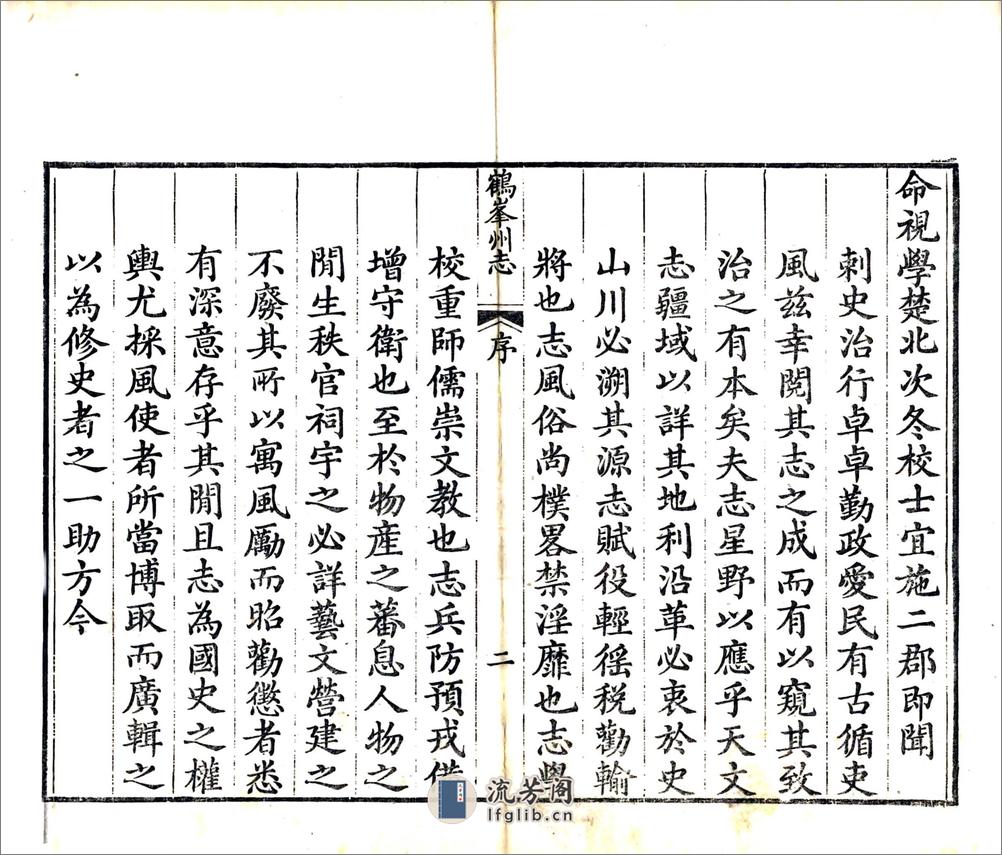 命視學楚北次冬校士宜施二郡即聞
刺史治行卓卓勤政愛民有古循吏
風茲幸閱其志之成而有以窺其致
治之有本矣夫志星野以應乎天文
志疆域以詳其地利沿革必衷於史
山川必溯其源志賦役輕徭稅勸輸
將也志風俗尚樸畧禁淫靡也志學
鶴峯州志
序
二
校重師儒崇文教也志兵防預戎備
增守衛也至於物產之蕃息人物之
閒生秩官祠宇之必詳藝文營建之
不廢其所以寓風勵而昭勸懲者悉
有深意存乎其閒且志為國史之權
輿尤採風使者所當博取而廣輯之
以為修史者之一助方今
流芳阁
lfglib.cn